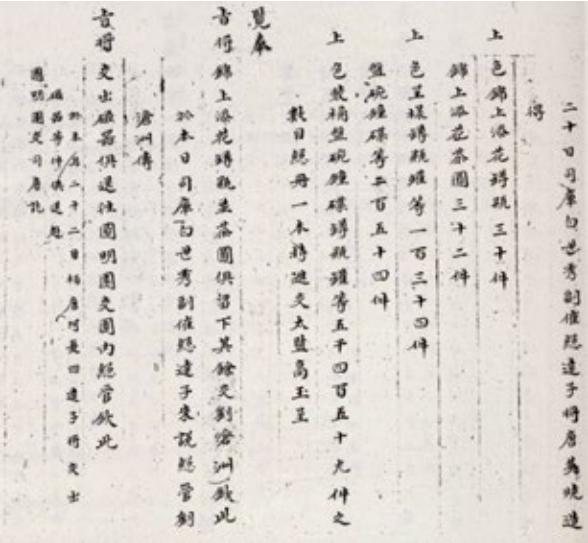 二十日司庫白世秀副催總達子將唐英燒造
得
上色錦上添花罇瓶三十件
錦上添花茶圓三十二件
上色呈樣罇瓶罐等一百三十四件
盤碗鍾碟等二百五十四件
上色裝桶盤碗鍾碟罇瓶罐等五千四百五十九件之
數目總冊一本持進交太監高玉呈
覽奉
旨將錦上添花罇瓶並茶圓俱留下其餘交劉滄洲欽此
於本日司庫白世秀副催總達子來說總管劉
滄洲傳
旨將交出磁器俱送往圓明園交園內總管欽此
於本月二十二日栢唐阿長四達子將交出
磁器等件俱送赴
圓明園交司房訖